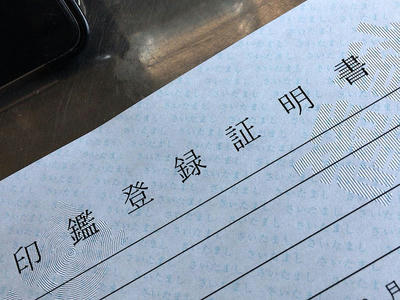 印鑑登録証明書